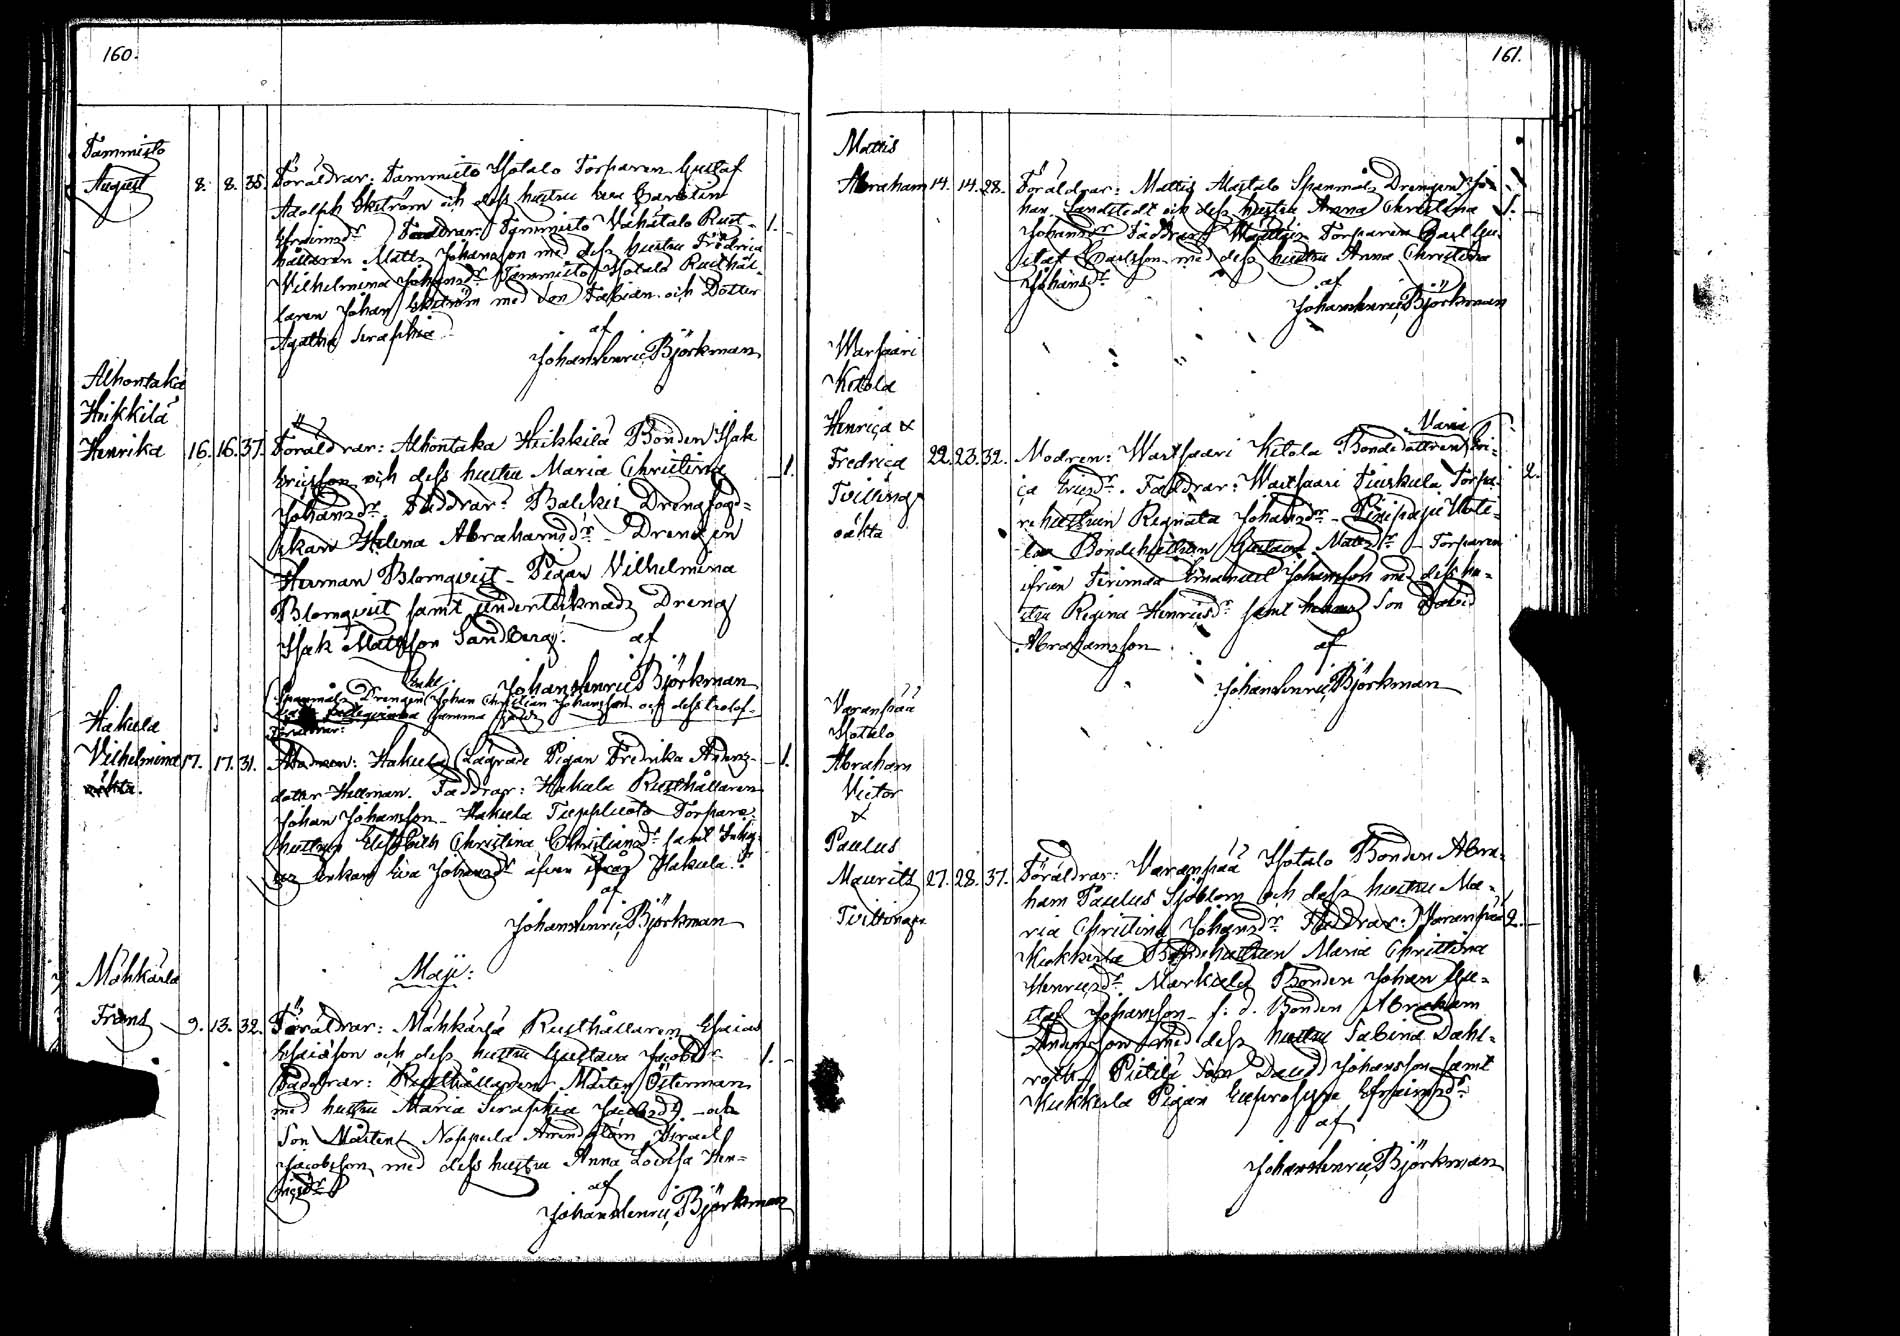 160.
Tammisto
August 8. 8. 35. Föräldrar: Tammisto Isotalo Torparen Gustaf
Adolph Ekström och dess hustru Eva Carolin
Efraimsdr Faddrar: Tammisto Vähätalo Rust- 1.
hållaren Matts Johansson med dess hustru Fredrica
Vilhelmina Johansdr Tammisto Isotalo Rusthål-
laren Johan Ekström med Son Fabian och Dotter
Agatha Seraphia
af
Johan Henric Björkman
Alhontaka
Heikkilä
Henrika 16. 16. 37. Föräldrar: Alhontaka Heikkilä Bonden Isak
Ericsson och dess hustru Maria Christina 1.
Johansdr. Faddrar: Balckis Drengfogd-
skan Helena Abrahamsdr - Drengen
Herman Blomqvist - Pigan Vilhelmina
Blomqvist samt undertecknads Dreng
Isak Mattsson Sandberg. af
Johan Henric Björkman
Enkl.
Spanmåls Drengen Johan Christian Johansson och dess trolof-
samma
Föräldrar:
Hakula
Vilhelmina 17. 17. 31. Modren: Hakula Lägrade Pigan Fredrika Anders- 1.
oäkta.
dotter Hellman. Faddrar: Hakula Rusthållaren
Johan Johansson - Hakula Torpare
hustrun Elisabeth Christina Christiansdr samt Inhys
Enkan Eva Johansdr äfven ifrån Hakula.
af
Johan Henric Björkman
Maji:
Mähkärlä
Frans 9. 13. 32. Föräldrar: Mähkärlä Rusthållaren Esaias
Esaiasson och dess hustru Gustava Jacobsdr 1.
Faddrar: Rusthållaren Mårten Österman
med hustru Maria Seraphia Jacobsdr - och
Son Mårten Noppula Israel
Jacobsson med dess hustru Anna Lovisa Hen-
ricsdr
af
Johan Henric Björkman
161.
Mattis
Abraham 14. 14. 28. Föräldrar: Mattis Alastalo Spanmåls Drengen Jo-
han Sandstedt och dess hustru Anna Christina 1.
Johansdr Faddrar: Mattis Torparen Carl Gu-
staf Carlsson med dess hustru Anna Christina
Johansdr
af
Johan Henric Björkman
Warfsaari
Kitola
Henrica &
Maria
Fredrica 22. 23. 32. Modren: Warfsaari Kitola Bondedottren Eri-
Tvillingar
ca Ericsdr. Faddrar: Warfsaari Tuiskula Torpa- 2.
re hustrun Reginata Johansdr -
oäkta
Bondehustrun Gustava Mattsdr - Torparen
ifrån Tirimaa Emanuel Johansson med dess hu-
stru Regina Henricsdr samt hennes Son David
Abrahamsson
af
Johan Henric Björkman
Varanpää
Isotalo
Abraham
Victor
&
Paulus
Maurits 27. 28. 37. Föräldrar: Varanpää Isotalo Bonden Abra-
Tvillingar
ham Paulus Sjöblom och dess hustru Ma-
ria Christina Johansdr Faddrar: Varanpää 2.
Kukkerla Bondehustrun Maria Christina
Henricsdr Markula Bonden Johan Gu-
staf Johansson - f. d. Bonden Abraham
Andersson med dess hustru Sabina Dahl-
roth - Pietilä Son David Johansson samt
Kukkerla Pigan Euphrosyne Efraimsdr
af
Johan Henric Björkman